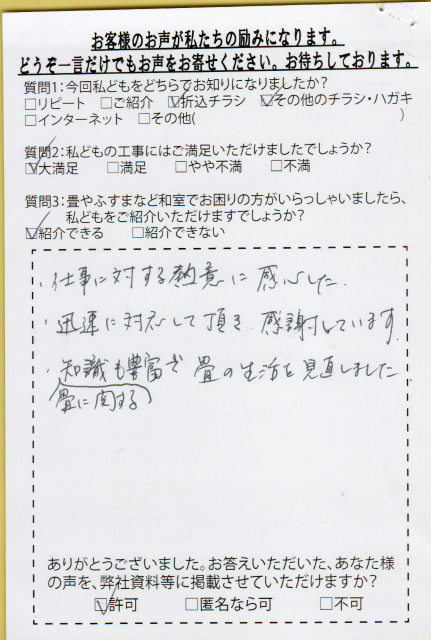 お客様のお声が私たちの励みになります。
どうぞ一言だけでもお声をお寄せください。お待ちしております。
質問1:今回私どもをどちらでお知りになりましたか?
□リピート □ご紹介 ☑折込チラシ ☑その他のチラシ・ハガキ
□インターネット □その他( )
質問2:私どもの工事にはご満足いただけましたでしょうか?
☑大満足 □満足 □やや不満 □不満
質問3:畳やふすまなど和室でお困りの方がいらっしゃいましたら、
私どもをご紹介いただけますでしょうか?
☑紹介できる □紹介できない
・仕事に対する熱意に感心した.
・迅速に対応して頂き感謝しています.
・知識も豊富で畳の生活を見直しました
(畳に関する)
ありがとうございました。お答えいただいた、あなた様
の声を、弊社資料等に掲載させていただけますか?
☑許可 □匿名なら可 □不可